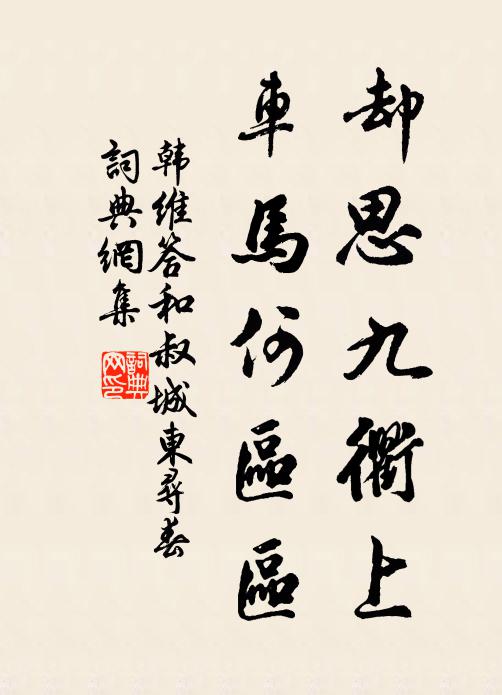 却思九衢上
車馬何區區
韩维答和叔城東尋春
詞典網集
詞典
网印